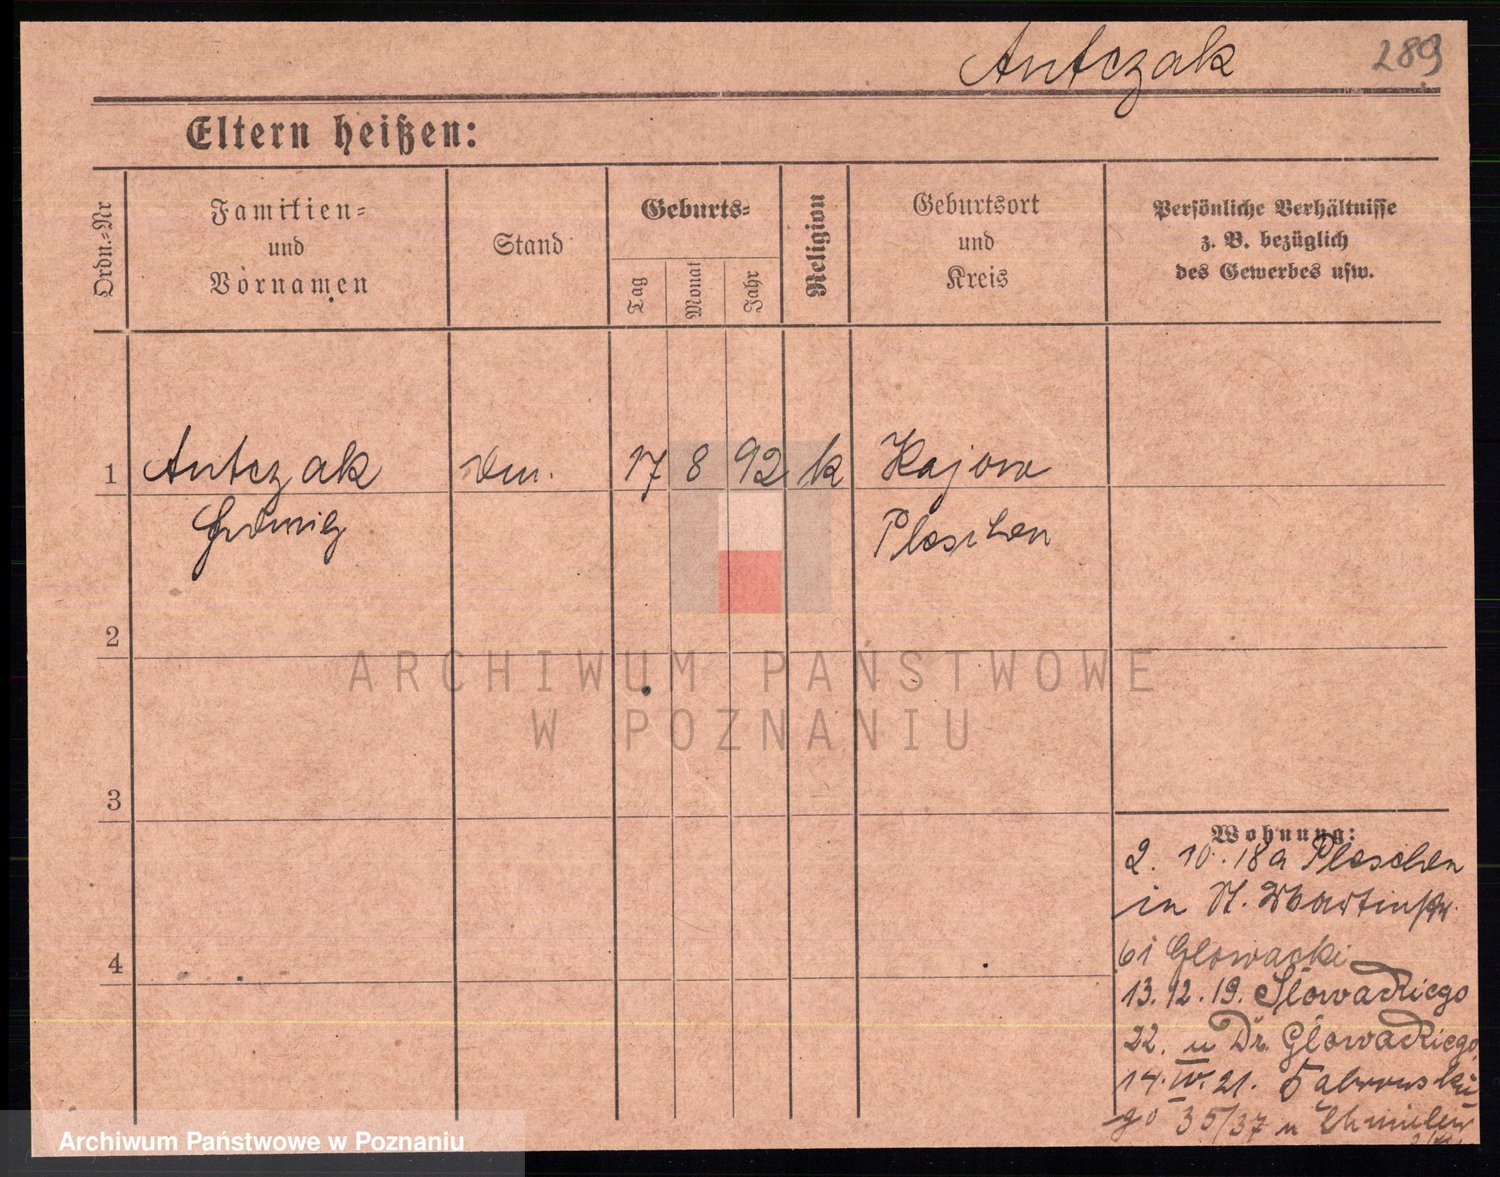 Antczak 289
Eltern heißen:
Ordn.=Nr
Familien=
und
Vornamen
Stand
Geburts=
Tag
Monat
Jahr
Religion
Geburtsort
und
Kreis
Persönliche Verhältnisse
z. B. bezüglich
des Gewerbes usw.
1 Antczak 17 8 92 k Kajew
Pleschen
2
3
4
Wohnung:
2. 10. 18 a Pleschen
in St. Martinstr.
61 Glowacki
13. 12. 19. Słowackiego
22. u Dr. Głowackiego
14. IV. 21.
go 35/37 u
ARCHIWUM PAŃSTWOWE
W POZNANIU
Archiwum Państwowe w Poznaniu